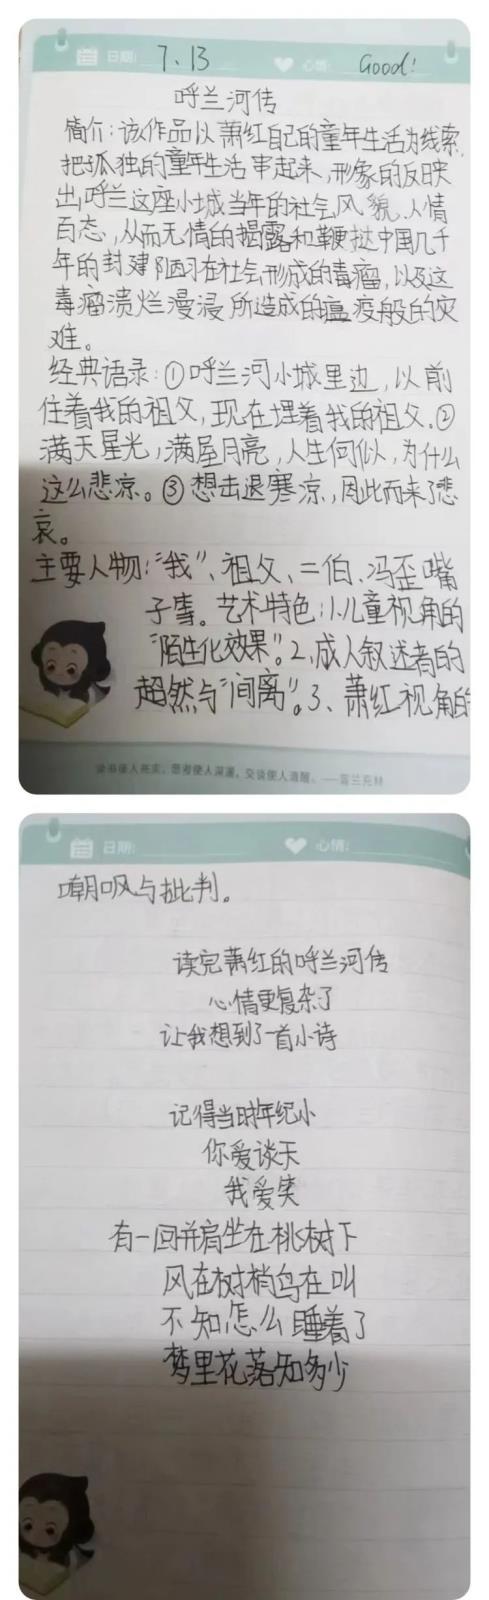 日期: 7、13 心情: Good!
呼兰河传
简介:该作品以萧红自己的童年生活为线索,
把孤独的童年生活串起来,形象的反映
出呼兰这座小城当年的社会风貌、人情
百态,从而无情的揭露和鞭挞中国几千
年的封建陋习在社会形成的毒瘤,以及这
毒瘤溃烂漫浸所造成的瘟疫般的灾
难。
经典语录:①呼兰河小城里边,以前
住着我的祖父,现在埋着我的祖父。②
满天星光,满屋月亮,人生何似,为什么
这么悲凉。③想击退寒凉,因此而来了悲
哀。
主要人物:“我”、祖父、二伯、冯歪嘴
子等。艺术特色:1、儿童视角的
“陌生化效果”。2、成人叙述者的
超然与“间离”。3、萧红视角的
读书使人充实,思考使人深邃,交谈使人清醒。——富兰克林
日期: 心情:
嘲讽与批判。
读完萧红的呼兰河传
心情更复杂了
让我想到了一首小诗
记得当时年纪小
你爱谈天
我爱笑
有一回并肩坐在桃树下
风在树梢鸟在叫
不知怎么睡着了
梦里花落知多少